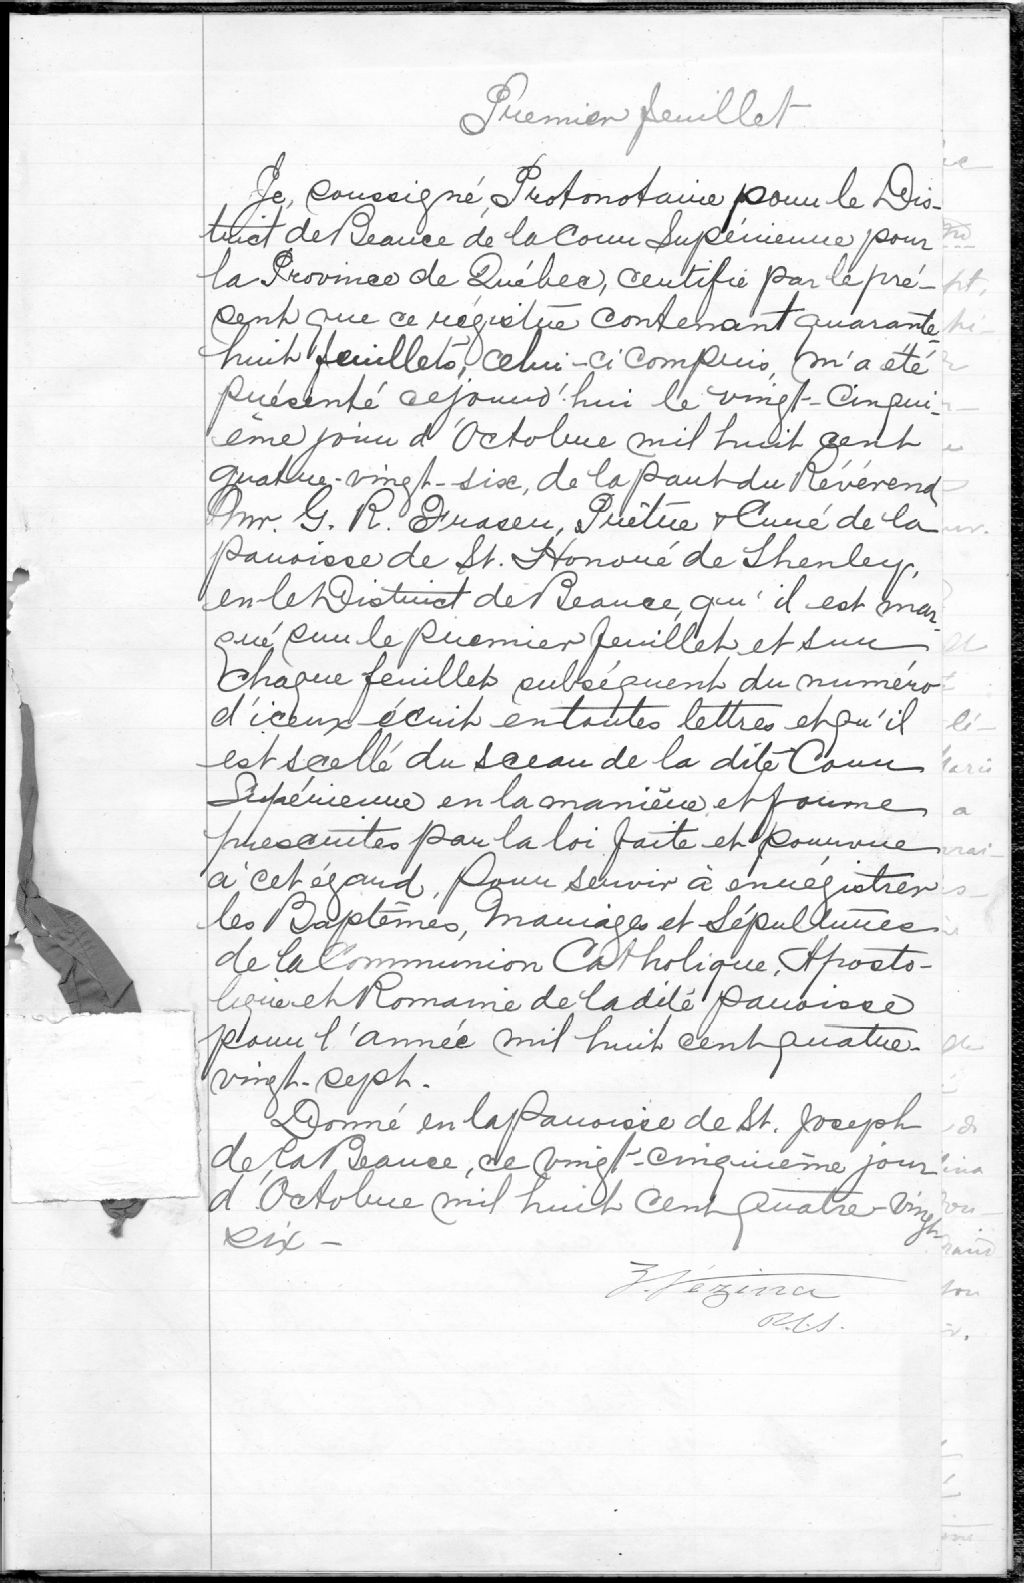 Premier feuillet
Je, soussigné, Protonotaire pour le Dis-
trict de Beauce de la Cour Supérieure pour
la Province de Québec, certifie par le pré-
sent que ce régistre contenant quarante-
huit feuillets, celui-ci compris, m'a été
présenté cejourd'hui le vingt-cinqui-
ème jour d'Octobre mil huit cent
quatre-vingt-six, de la part du Révérend
Mr. G. R. Fraser, Prêtre & Curé de la
paroisse de St. Honoré de Shenley,
en le District de Beauce, qu'il est mar-
qué sur le premier feuillet et sur
chaque feuillet subséquent du numéro
d'iceux écrit en toutes lettres et qu'il
est scellé du sceau de la dite Cour
Supérieure en la manière et forme
prescrites par la loi faite et pourvue
à cet égard, pour servir à enrégistrer
les Baptêmes, Mariages et Sépultures
de la Communion Catholique, Aposto-
lique et Romaine de la dite paroisse
pour l'année mil huit cent quatre-
vingt-sept.
Donné en la Paroisse de St. Joseph
de la Beauce, ce vingt-cinquième jour
d'Octobre mil huit cent quatre-vingt-
six -
Z. Vézina
P.C.S.